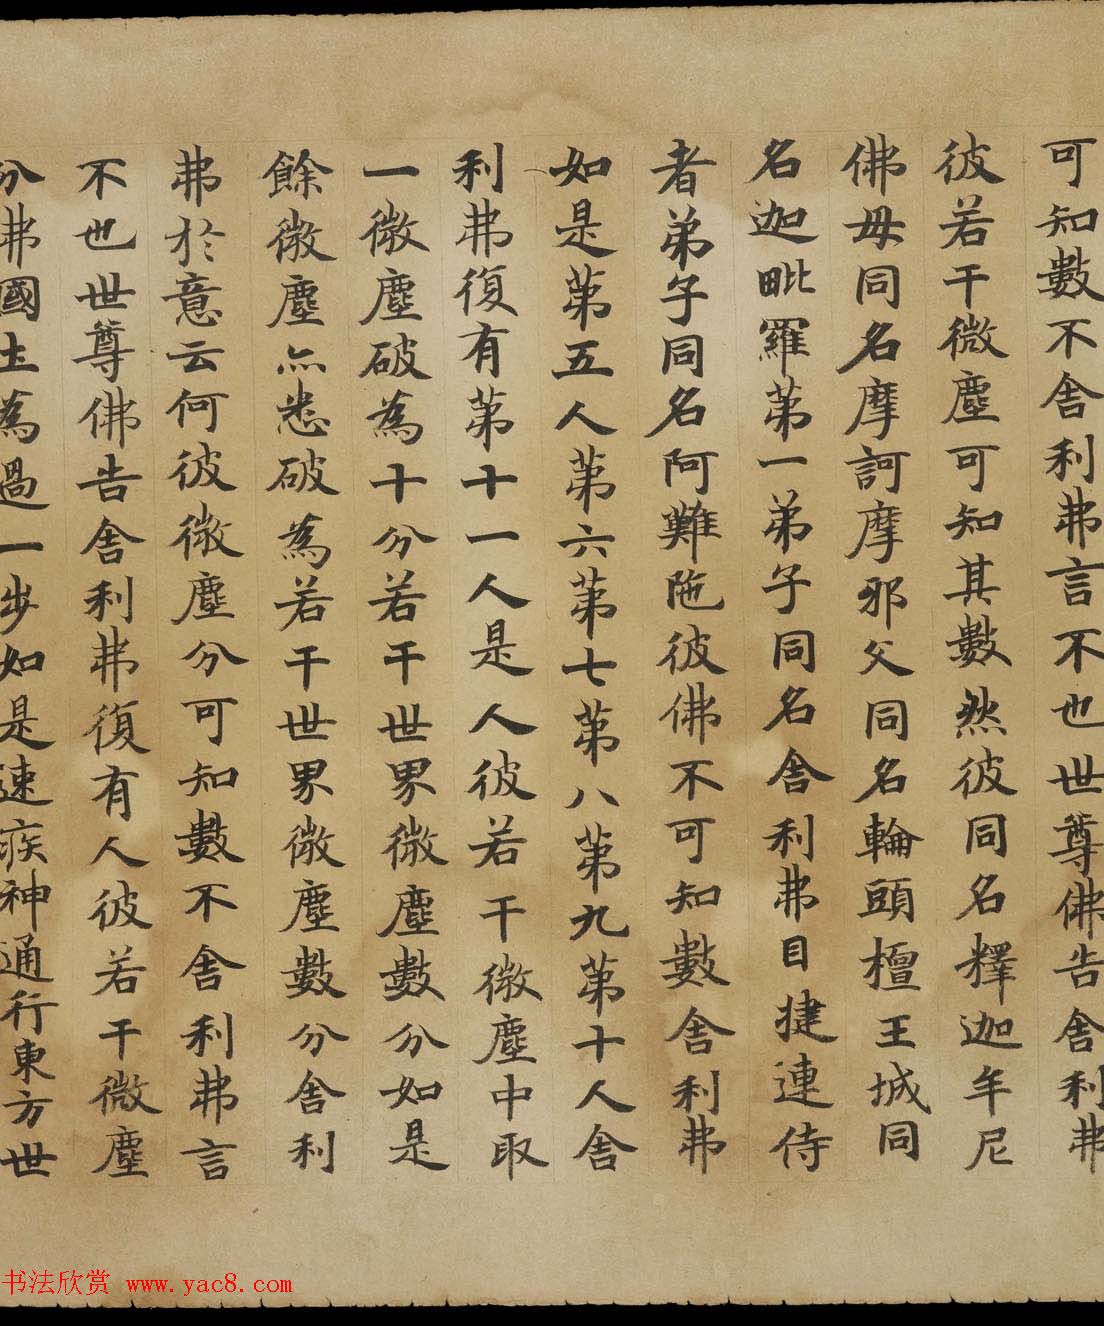 可知數不舍利弗言不也世尊佛告舍利弗
彼若干微塵可知其數然彼同名釋迦牟尼
佛毋同名摩訶摩邪父同名輪頭檀王城同
名迦毗羅第一弟子同名舍利弗目揵連侍
者弟子同名阿難陁彼佛不可知數舍利弗
如是第五人第六第七第八第九第十人舍
利弗復有第十一人是人彼若干微塵中取
一微塵破為十分若干世界微塵數分如是
餘微塵亦悉破為若干世界微塵數分舍利
弗於意云何彼微塵分可知數不舍利弗言
不也世尊佛告舍利弗復有人彼若干微塵
分弗國土為過一步如是速疾神通行東方世
书法欣赏 www.yac8.com